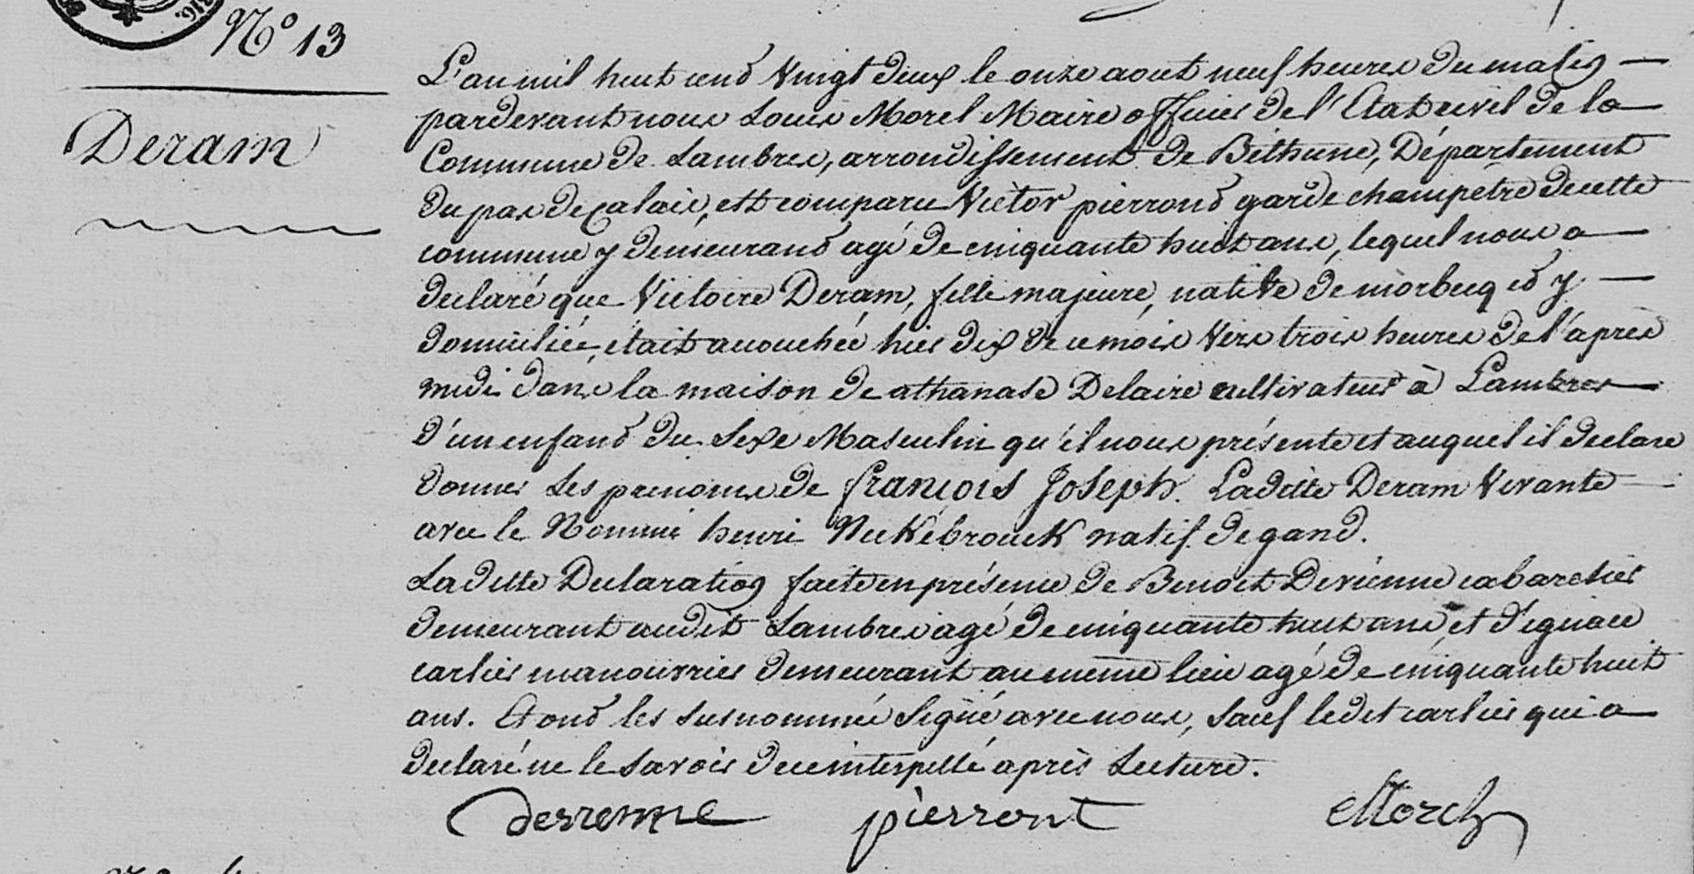 N° 13
Deram
L'an mil huit cend vingt deux le onze aout neuf heures du matin
pardevant nous Louis Morel Maire officier de l'Etat civil de la
Commune de Lambres, arrondissement de Béthune, Département
du pas de Calais, est comparu Victor pierrond garde champetre de cette
commune y demeurand agé de cinquante huit ans, lequel nous a
declaré que Victoire Deram, fille majeure, native de morbecq ed y
domiciliée, était accouchée hier dix de ce mois vers trois heures de l'après
midi dans la maison de athanase Delaire cultivateur à Lambres
d'un enfand du Sexe Masculin qu'il nous présente et auquel il declare
donner les prenoms de françois Joseph. Laditte Deram Vivante
avec le Nommé henri Neckebrouck natif de gand.
Laditte Declaration faite en présence de Benoit Devienne cabaretier
demeurant audit Lambres agé de cinquante huit ans, et d'ignace
carlier manouvrier demeurant au même lieu agé de cinquante huit
ans. Et ond les susnommé Signé avec nous, sauf ledit carlier qui a
declaré ne le savoir de ce interpellé après Lecture.
devienne pierront Morel